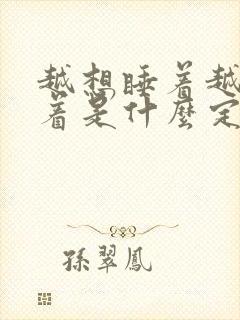 越想睡着越
着是什麼定
孫翠鳳